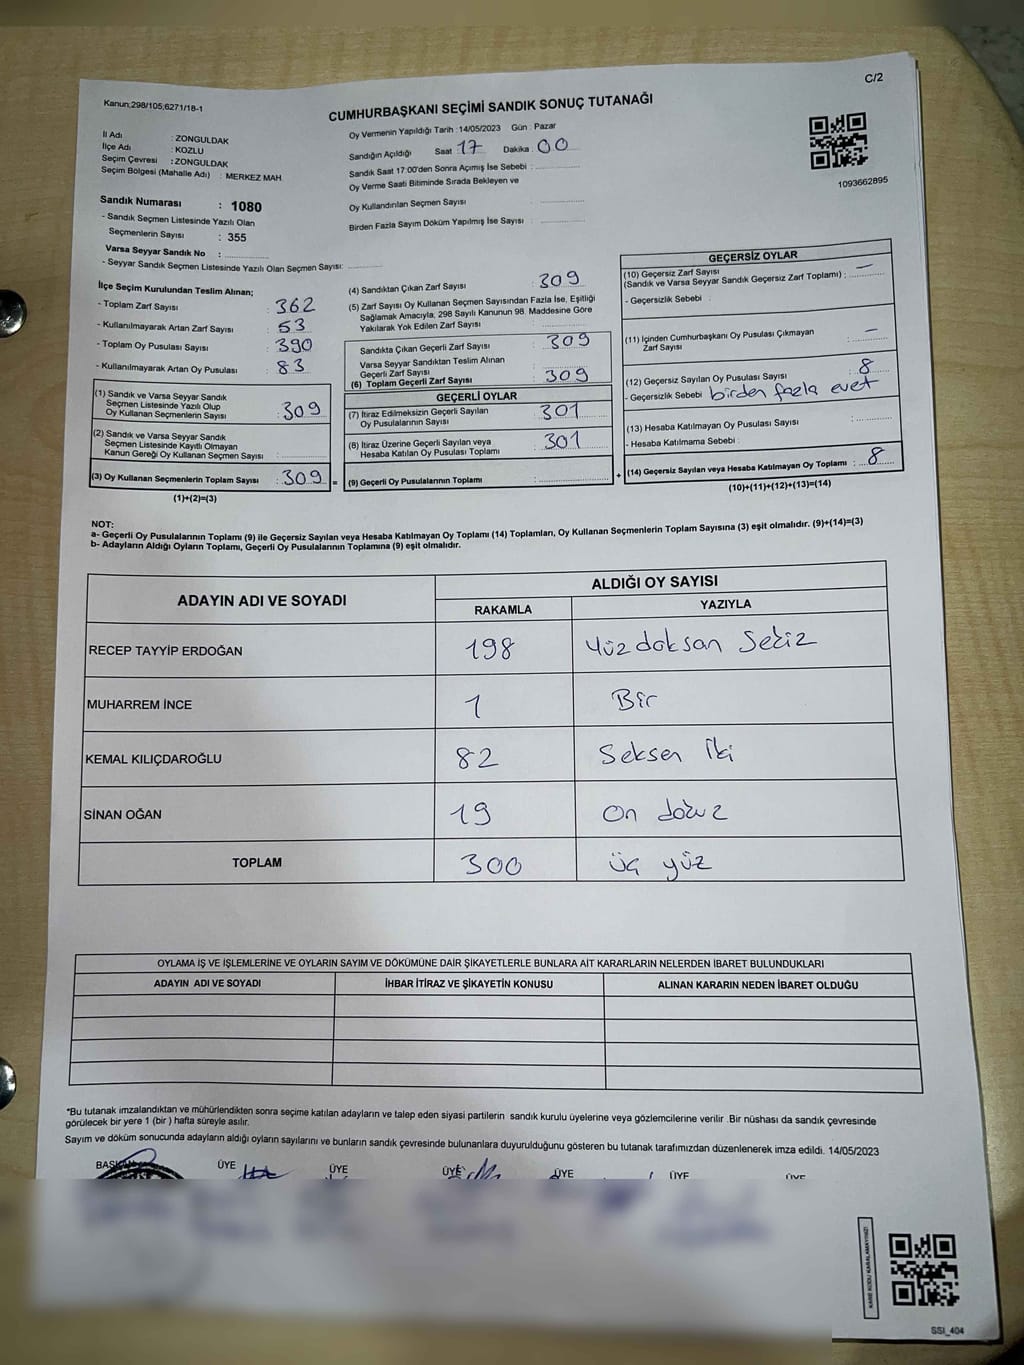 C/2
Kanun;298/105;6271/18-1
CUMHURBAŞKANI SEÇİMİ SANDIK SONUÇ TUTANAĞI
İl Adı : ZONGULDAK
İlçe Adı : KOZLU
Seçim Çevresi : ZONGULDAK
Seçim Bölgesi (Mahalle Adı) : MERKEZ MAH
Oy Vermenin Yapıldığı Tarih :14/05/2023 Gün : Pazar
Sandığın Açıldığı Saat 17 Dakika 00
Sandık Saat 17:00'den Sonra Açımış İse Sebebi :
Oy Verme Saati Bitiminde Sırada Bekleyen ve
Oy Kullandırılan Seçmen Sayısı :
Birden Fazla Sayım Döküm Yapılmış İse Sayısı :
1093662895
Sandık Numarası : 1080
- Sandık Seçmen Listesinde Yazılı Olan
Seçmenlerin Sayısı : 355
Varsa Seyyar Sandık No :
- Seyyar Sandık Seçmen Listesinde Yazılı Olan Seçmen Sayısı:
İlçe Seçim Kurulundan Teslim Alınan;
- Toplam Zarf Sayısı : 362
- Kullanılmayarak Artan Zarf Sayısı : 53
- Toplam Oy Pusulası Sayısı : 390
- Kullanılmayarak Artan Oy Pusulası : 83
(1) Sandık ve Varsa Seyyar Sandık
Seçmen Listesinde Yazılı Olup
Oy Kullanan Seçmenlerin Sayısı : 309
(2) Sandık ve Varsa Seyyar Sandık
Seçmen Listesinde Kayıtlı Olmayan
Kanun Gereği Oy Kullanan Seçmen Sayısı :
(3) Oy Kullanan Seçmenlerin Toplam Sayısı : 309 =
(1)+(2)=(3)
(4) Sandıktan Çıkan Zarf Sayısı : 309
(5) Zarf Sayısı Oy Kullanan Seçmen Sayısından Fazla İse, Eşitliği
Sağlamak Amacıyla; 298 Sayılı Kanunun 98. Maddesine Göre
Yakılarak Yok Edilen Zarf Sayısı :
Sandıkta Çıkan Geçerli Zarf Sayısı : 309
Varsa Seyyar Sandıktan Teslim Alınan
Geçerli Zarf Sayısı :
(6) Toplam Geçerli Zarf Sayısı : 309
GEÇERLİ OYLAR
(7) İtiraz Edilmeksizin Geçerli Sayılan
Oy Pusulalarının Sayısı : 301
(8) İtiraz Üzerine Geçerli Sayılan veya
Hesaba Katılan Oy Pusulası Toplamı : 301
(9) Geçerli Oy Pusulalarının Toplamı : +
GEÇERSİZ OYLAR
(10) Geçersiz Zarf Sayısı
(Sandık ve Varsa Seyyar Sandık Geçersiz Zarf Toplamı) : —
- Geçersizlik Sebebi :
(11) İçinden Cumhurbaşkanı Oy Pusulası Çıkmayan
Zarf Sayısı : —
(12) Geçersiz Sayılan Oy Pusulası Sayısı : 8
- Geçersizlik Sebebi birden fazla evet
(13) Hesaba Katılmayan Oy Pusulası Sayısı :
- Hesaba Katılmama Sebebi :
(14) Geçersiz Sayılan veya Hesaba Katılmayan Oy Toplamı : 8
(10)+(11)+(12)+(13)=(14)
NOT:
a- Geçerli Oy Pusulalarının Toplamı (9) ile Geçersiz Sayılan veya Hesaba Katılmayan Oy Toplamı (14) Toplamları, Oy Kullanan Seçmenlerin Toplam Sayısına (3) eşit olmalıdır. (9)+(14)=(3)
b- Adayların Aldığı Oyların Toplamı, Geçerli Oy Pusulalarının Toplamına (9) eşit olmalıdır.
ADAYIN ADI VE SOYADI ALDIĞI OY SAYISI
RAKAMLA YAZIYLA
RECEP TAYYİP ERDOĞAN 198 Yüz doksan Sekiz
MUHARREM İNCE 1 Bir
KEMAL KILIÇDAROĞLU 82 Seksen İki
SİNAN OĞAN 19 On dokuz
TOPLAM 300 üç yüz
OYLAMA İŞ VE İŞLEMLERİNE VE OYLARIN SAYIM VE DÖKÜMÜNE DAİR ŞİKAYETLERLE BUNLARA AİT KARARLARIN NELERDEN İBARET BULUNDUKLARI
ADAYIN ADI VE SOYADI İHBAR İTİRAZ VE ŞİKAYETİN KONUSU ALINAN KARARIN NEDEN İBARET OLDUĞU
*Bu tutanak imzalandıktan ve mühürlendikten sonra seçime katılan adayların ve talep eden siyasi partilerin sandık kurulu üyelerine veya gözlemcilerine verilir. Bir nüshası da sandık çevresinde
görülecek bir yere 1 (bir ) hafta süreyle asılır.
Sayım ve döküm sonucunda adayların aldığı oyların sayılarını ve bunların sandık çevresinde bulunanlara duyurulduğunu gösteren bu tutanak tarafımızdan düzenlenerek imza edildi. 14/05/2023
ÜYE ÜYE ÜYE ÜYE ÜYE ÜYE
KARE KODU KARALAMAYINIZ!
SSI_404